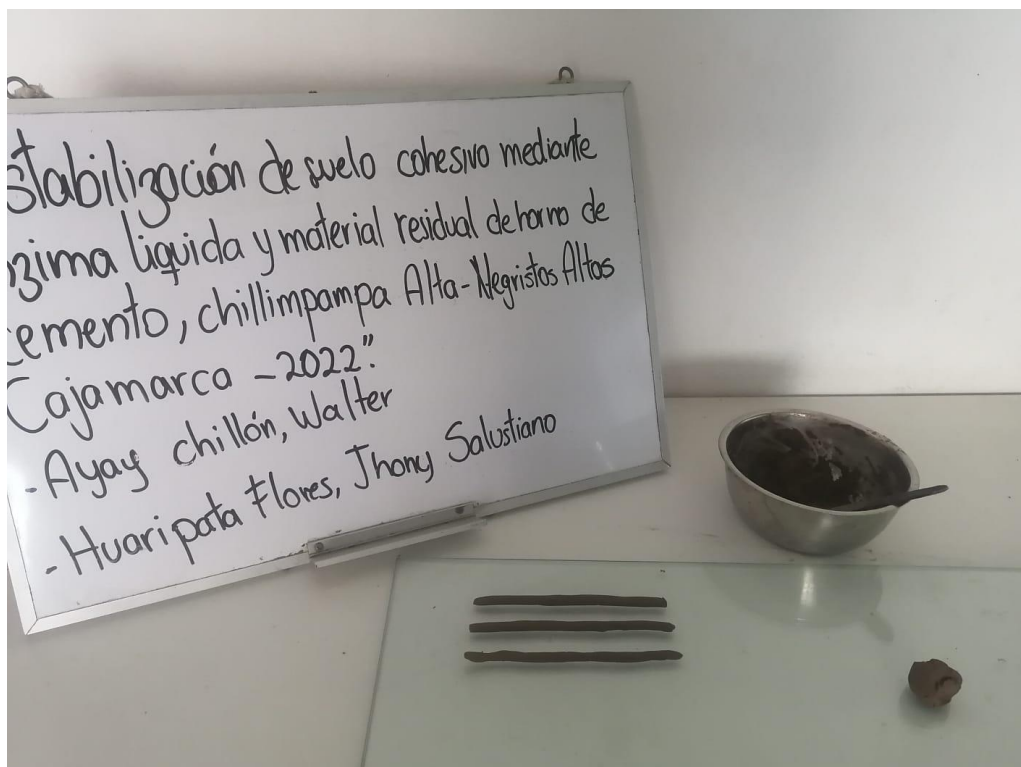 stabilización de suelo cohesivo mediante
zima liquida y material residual de horno de
cemento, chillimpampa Alta-Negristos Altos
Cajamarca - 2022".
- Ayay chillón, Walter
- Huaripata Flores, Jhony Salustiano